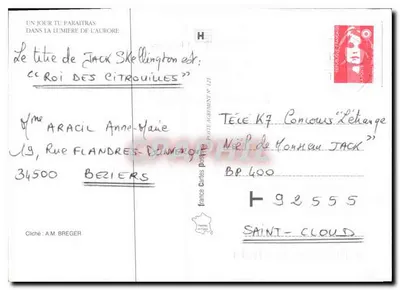 UN JOUR TU PARAITRAS
DANS LA LUMIERE DE L'AURORE
Le titre de JACK Skellington est:
"ROI DES CITROUILLES"
Mme ARACIL Anne-Marie
19, Rue FLANDRES-DUNKERQUE
34500 BEZIERS
Cliché : A.M. BREGER
H
france Cartes
TELE K7 Concours "L'étrange
Noël de Monsieur JACK"
BP 400
92555
SAINT-CLOUD